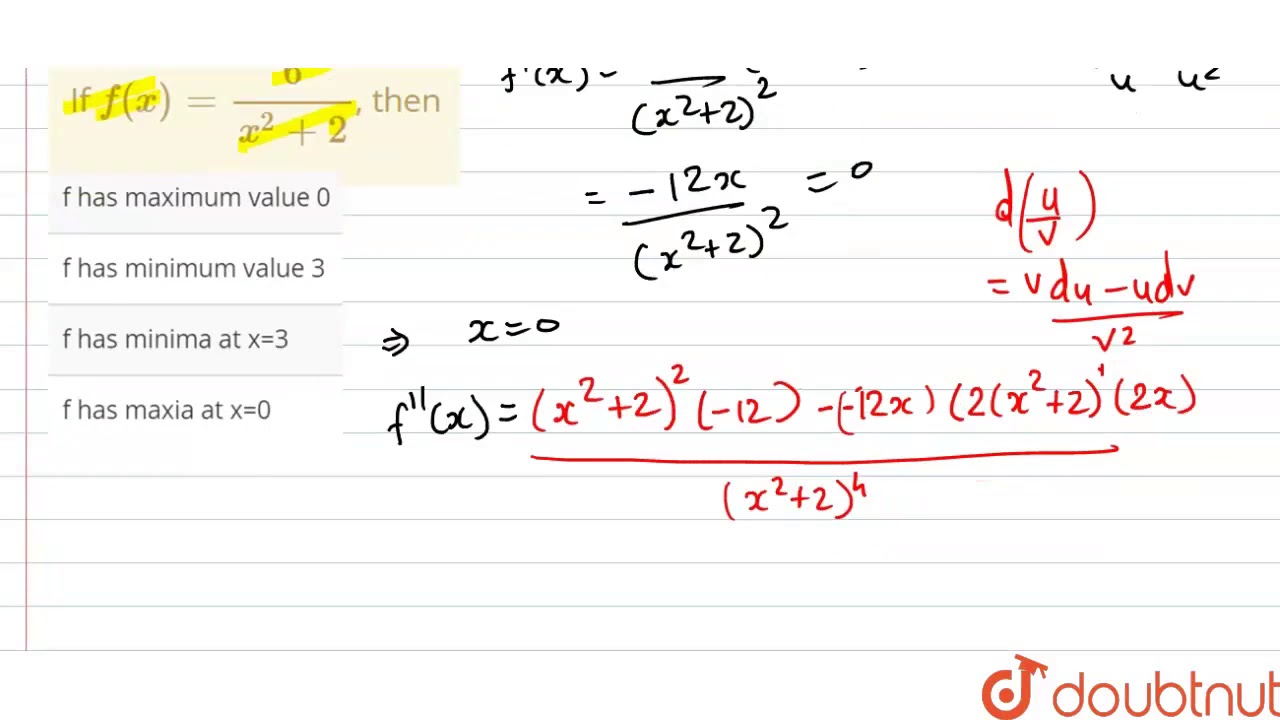 If f(x) = 6/(x² + 2), then
f has maximum value 0
f has minimum value 3
f has minima at x=3
f has maxia at x=0
f'(x) =
(x²+2)²
u u²
= -12x/(x²+2)² = 0
d(u/v)
= v du - u dv / v²
⇒ x = 0
f''(x) = (x²+2)² (-12) - (-12x) (2(x²+2)¹ (2x)
(x²+2)⁴
doubtnut